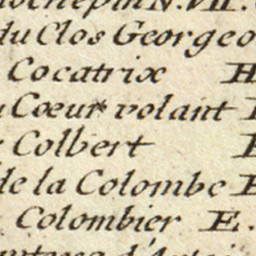 N. VII.
du Clos Georgeo
Cocatrix H
Cœur volant
Colbert
de la Colombe E
Colombier E.